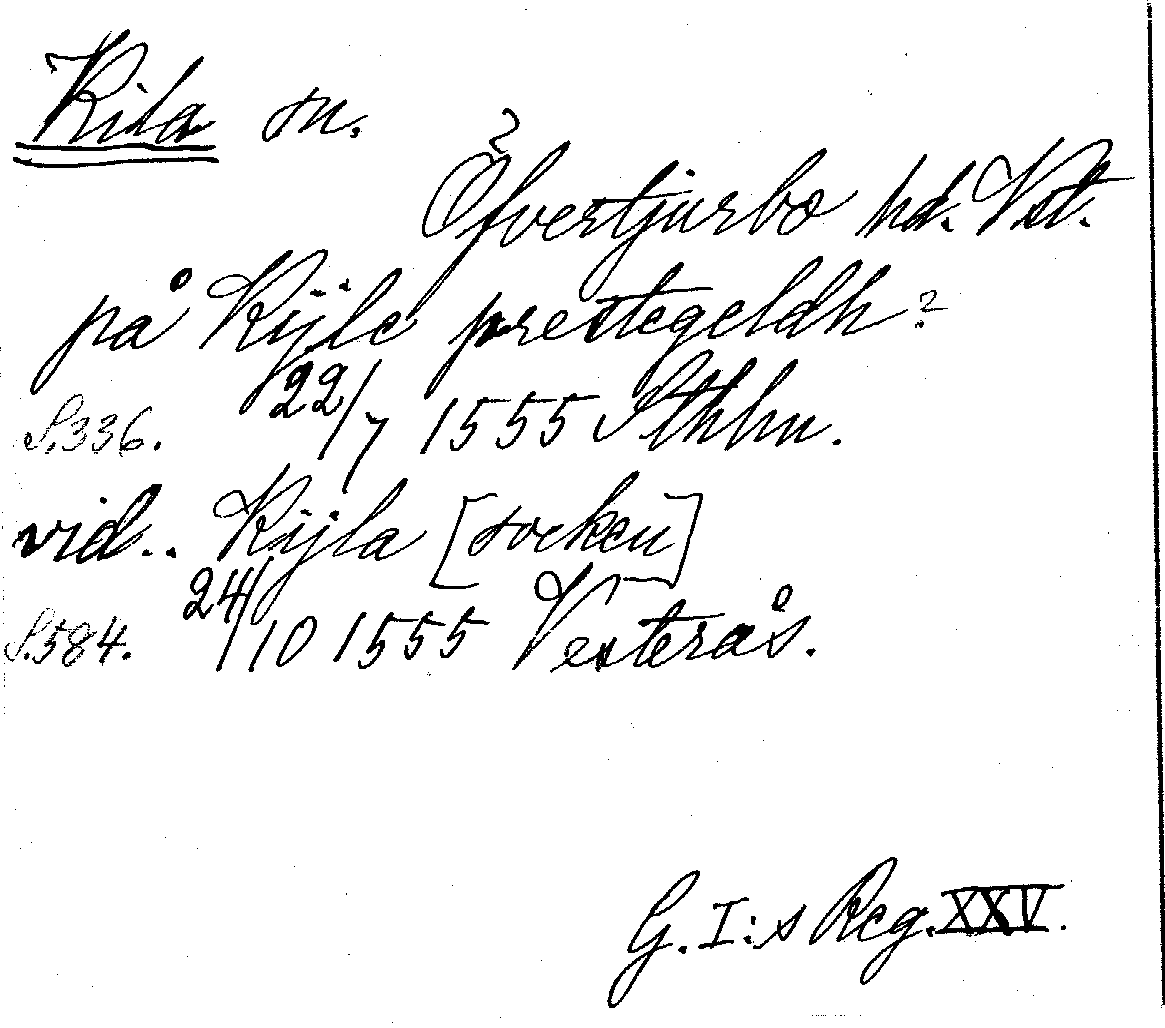 Kila sn.
Öfvertjurbo hd. Vstl.
på Kijle prestegeldh?
S. 336. 22/7 1555 Sthlm.
vid.. Kijla [socken]
S. 584. 24/10 1555 Vesterås.
G. I:s Reg. XXV.